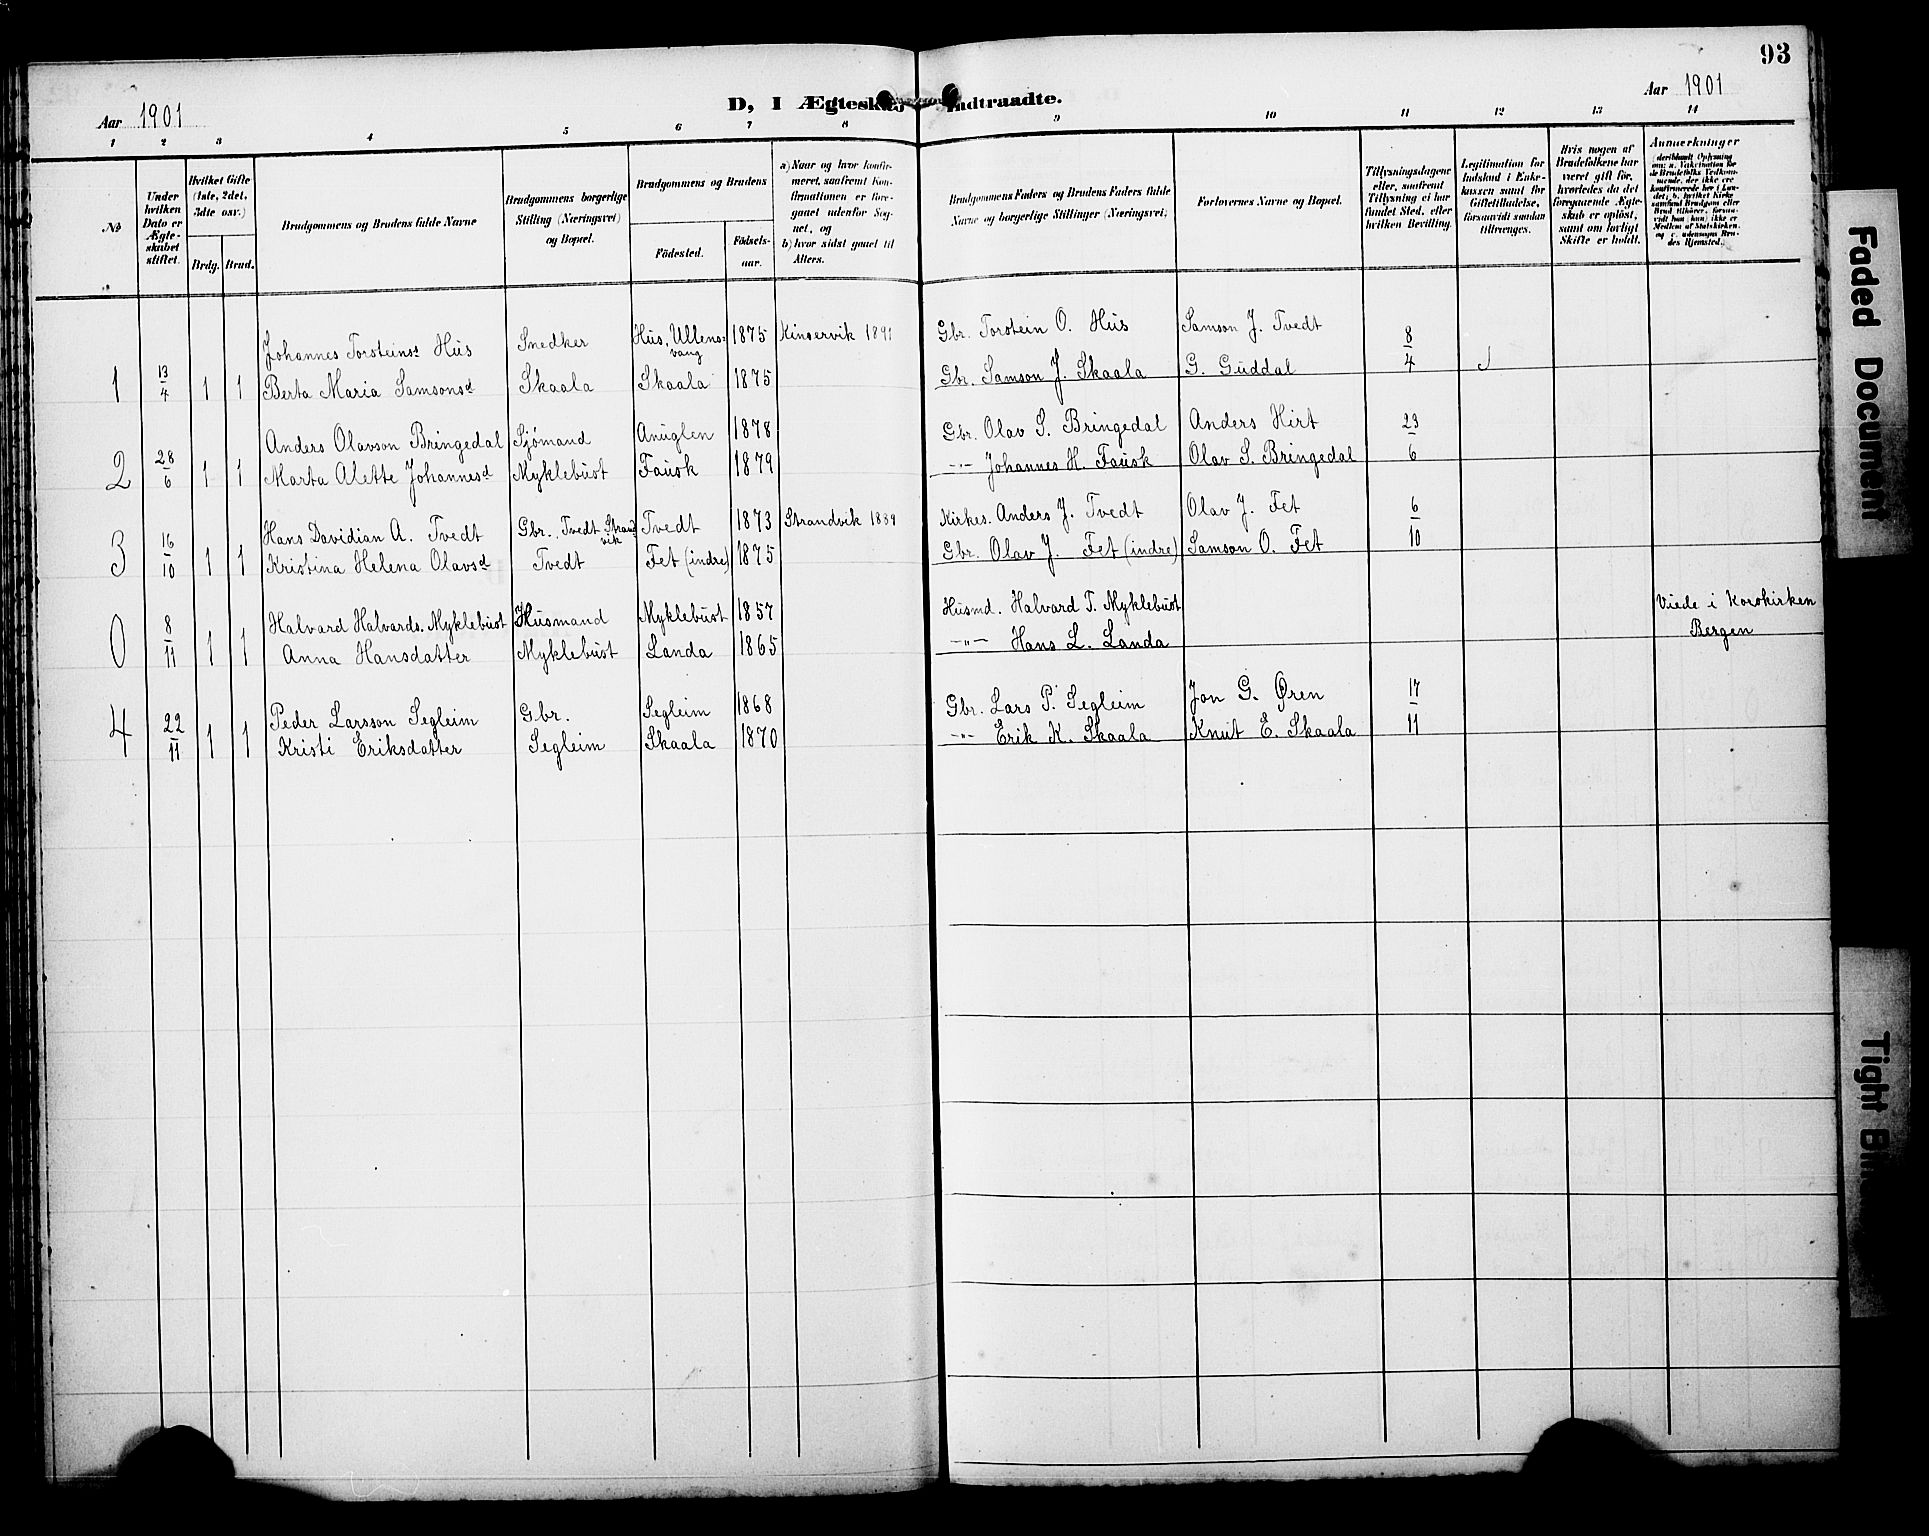 93
Aar 1901
D, I Ægteskab Indtraadte.
Aar 1901
1 2 3 4 5 6 7 8 9 10 11 12 13 14
№
Under hvilken Dato er Ægteskabet stiftet.
Hvilket Gifte (1ste, 2det, 3dte osv.)
Brdg. Brud.
Brudgommens og Brudens fulde Navne
Brudgommens borgerlige Stilling (Næringsvei) og Bopæl.
Brudgommens og Brudens
Födested.
Födselsaar.
a) Naar og hvor konfirmeret, saafremt Konfirmationen er foregaaet udenfor Sognet, og
b) hvor sidst gaaet til Alters.
Brudgommens Faders og Brudens Faders fulde Navne og borgerlige Stillinger (Næringsvei)
Forlovernes Navne og Bopæl.
Tillysningsdagene eller, saafremt Tillysning ei har fundet Sted, efter hvilken Bevilling.
Legitimation for Indskud i Enkekassen samt for Giftetilladelse, forsaavidt saadan tiltrænges.
Hvis nogen af Brudefolkene har været gift før, hvorledes da det foregaaende Ægteskab er opløst, samt om lovligt Skifte er holdt.
Anmærkninger
(deriblandt Oplysning om: a. Vakcination for de Brudefolks Vedkommende, der ikke ere konfirmerede her i Landet; b. hvilket Kirkesamfund Brudgom eller Brud tilhører, forsaavidt han (hun) ikke er Medlem af Statskirken, og c. udensogns Brudes Hjemsted.)
Johannes Torsteinss. Hus Snedker Hus, Ullensvang 1875 Kinservik 1891 Gbr. Torstein O. Hus Samson J. Tvedt 8
1 13/4 1 1 Berta Maria Samsonsd Skaala Skaala 1875 Gbr. Samson J. Skaala G. Guddal 4
Anders Olavson Bringedal Sjömand Anuglen 1878 Gbr. Olav S. Bringedal Anders Hirt 23
2 28/6 1 1 Marta Alette Johannesd Myklebust Fausk 1879 -"- Johannes H. Fausk Olav S. Bringedal 6
Hans Davidian A. Tvedt Gbr., Tvedt Strandvik Tvedt 1873 Strandvik 1889 Kirkes. Anders J. Tvedt Olav J. Fet 6
3 16/10 1 1 Kristina Helena Olavsd Tvedt Fet (indre) 1875 Gbr. Olav J. Fet (indre) Samson O. Fet 10
Halvard Halvards. Myklebust Husmand Myklebust 1857 Husmd. Halvard T. Myklebust Viede i Korskirken
0 8/11 1 1 Anna Hansdatter Myklebust Landa 1865 -"- Hans L. Landa Bergen
Peder Larsson Segleim Gbr. Segleim 1868 Gbr. Lars P. Segleim Jon G. Øren 17
4 22/11 1 1 Kristi Eriksdatter Segleim Skaala 1870 -"- Erik K. Skaala Knut E. Skaala 11
Faded Document
Tight